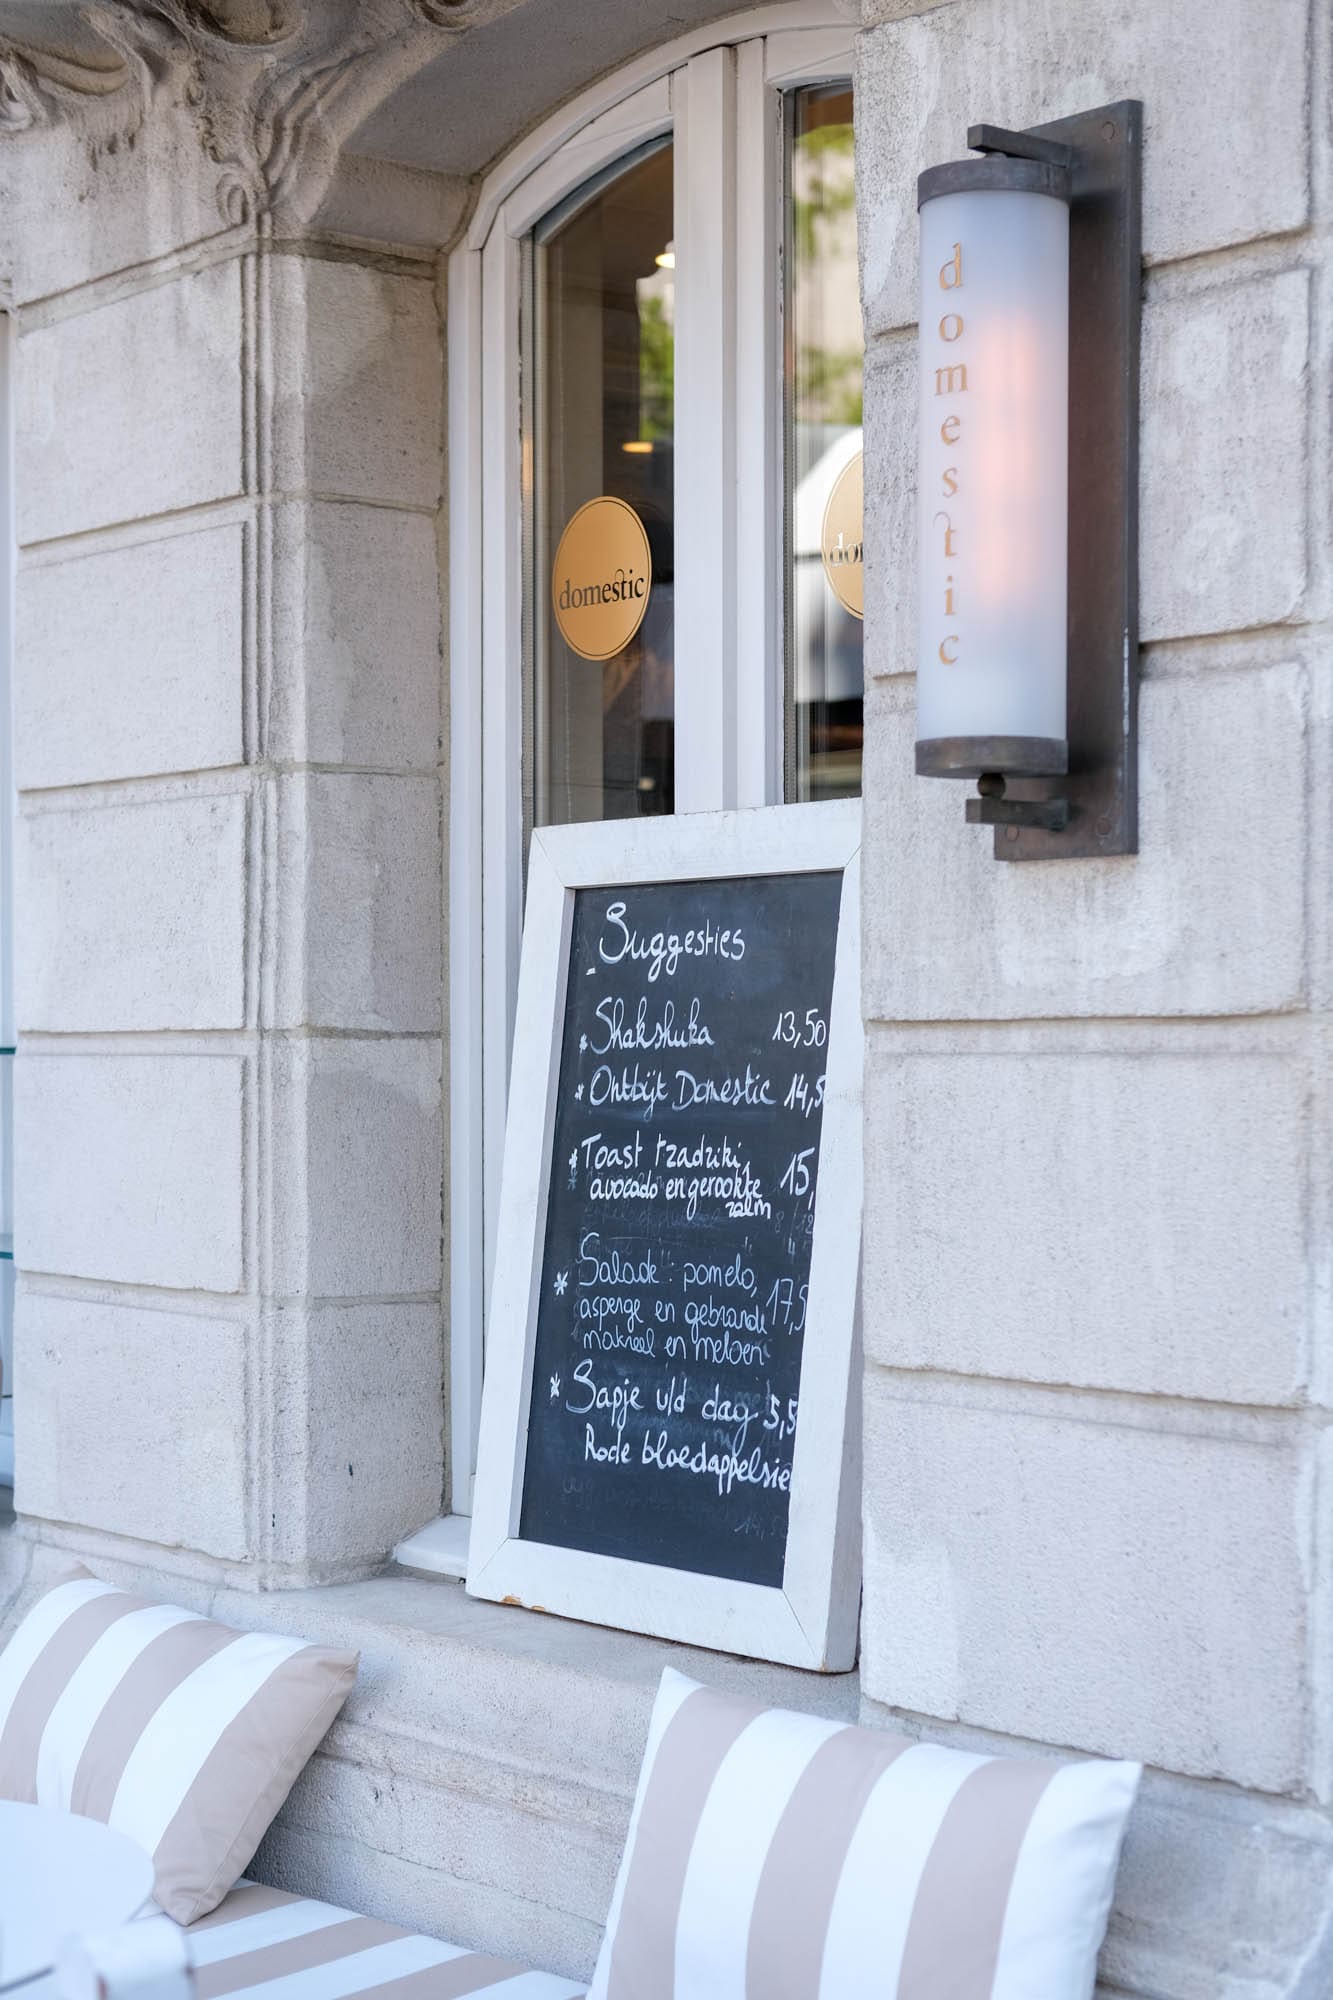 domestic
domestic
do
Suggesties
* Shakshuka 13,50
* Ontbijt Domestic 14,5
* Toast tzadziki, 15,
avocado en gerookte
zalm
* Salade: pomelo,
asperge en gebrande 17,5
makreel en meloen
* Sapje v/d dag 5,5
Rode bloedappelsie